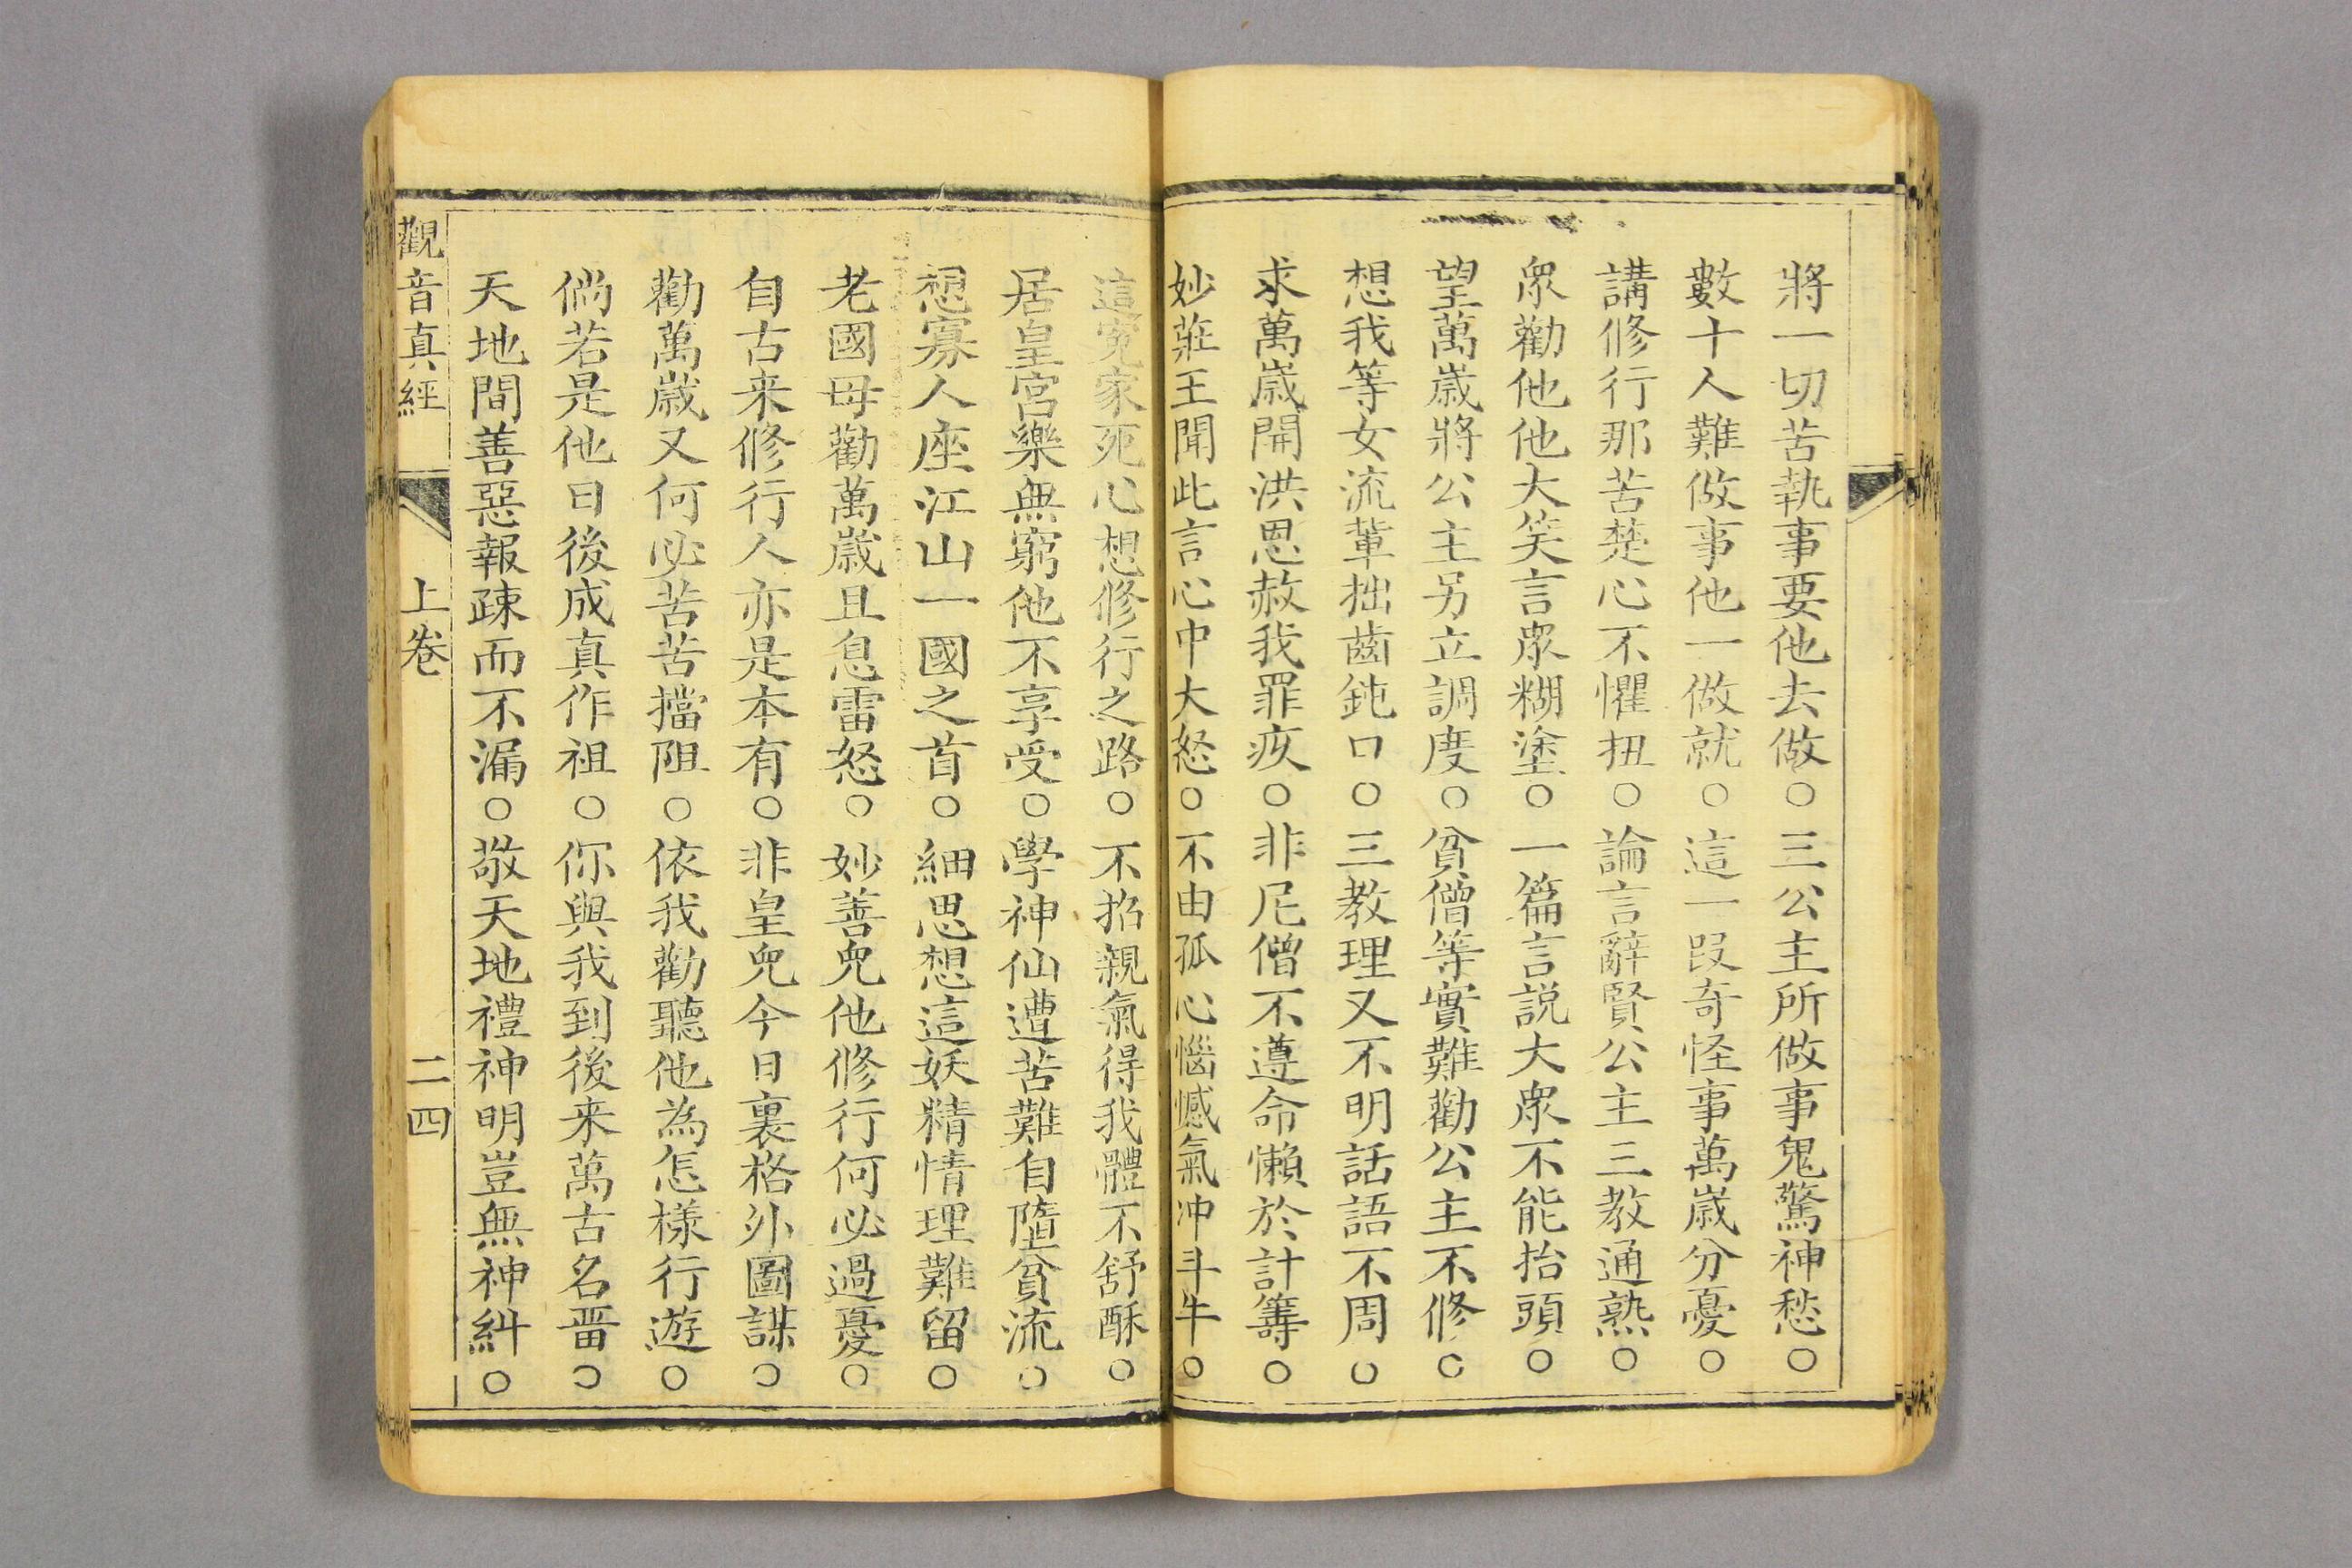 將一切苦執事要他去做○三公主所做事鬼驚神愁○
數十人難做事他一做就○這一段奇怪事萬歲分憂○
講修行那苦楚心不懼扭○論言辭賢公主三教通熟○
衆勸他他大笑言衆糊塗○一篇言説大衆不能抬頭○
望萬歲將公主另立調度○貧僧等實難勸公主不修○
想我等女流輩拙齒鈍口○三教理又不明話語不周○
求萬歲開洪恩赦我罪疚○非尼僧不遵命懶於計籌○
妙莊王聞此言心中大怒○不由孤心惱憾氣冲斗牛○
這冤家死心想修行之路○不招親氣得我體不舒酥○
居皇宮樂無窮他不享受○學神仙遭苦難自墮貧流○
想寡人座江山一國之首○細思想這妖精情理難留○
老國母勸萬歲且息雷怒○妙善兒他修行何必過憂○
自古来修行人亦是本有○非皇兒今日裏格外圖謀○
勸萬歲又何必苦苦擋阻○依我勸聽他為怎樣行遊○
倘若是他日後成真作祖○你與我到後来萬古名畱○
天地間善惡報疎而不漏○敬天地禮神明豈無神糾○
觀音真經 上卷 二四